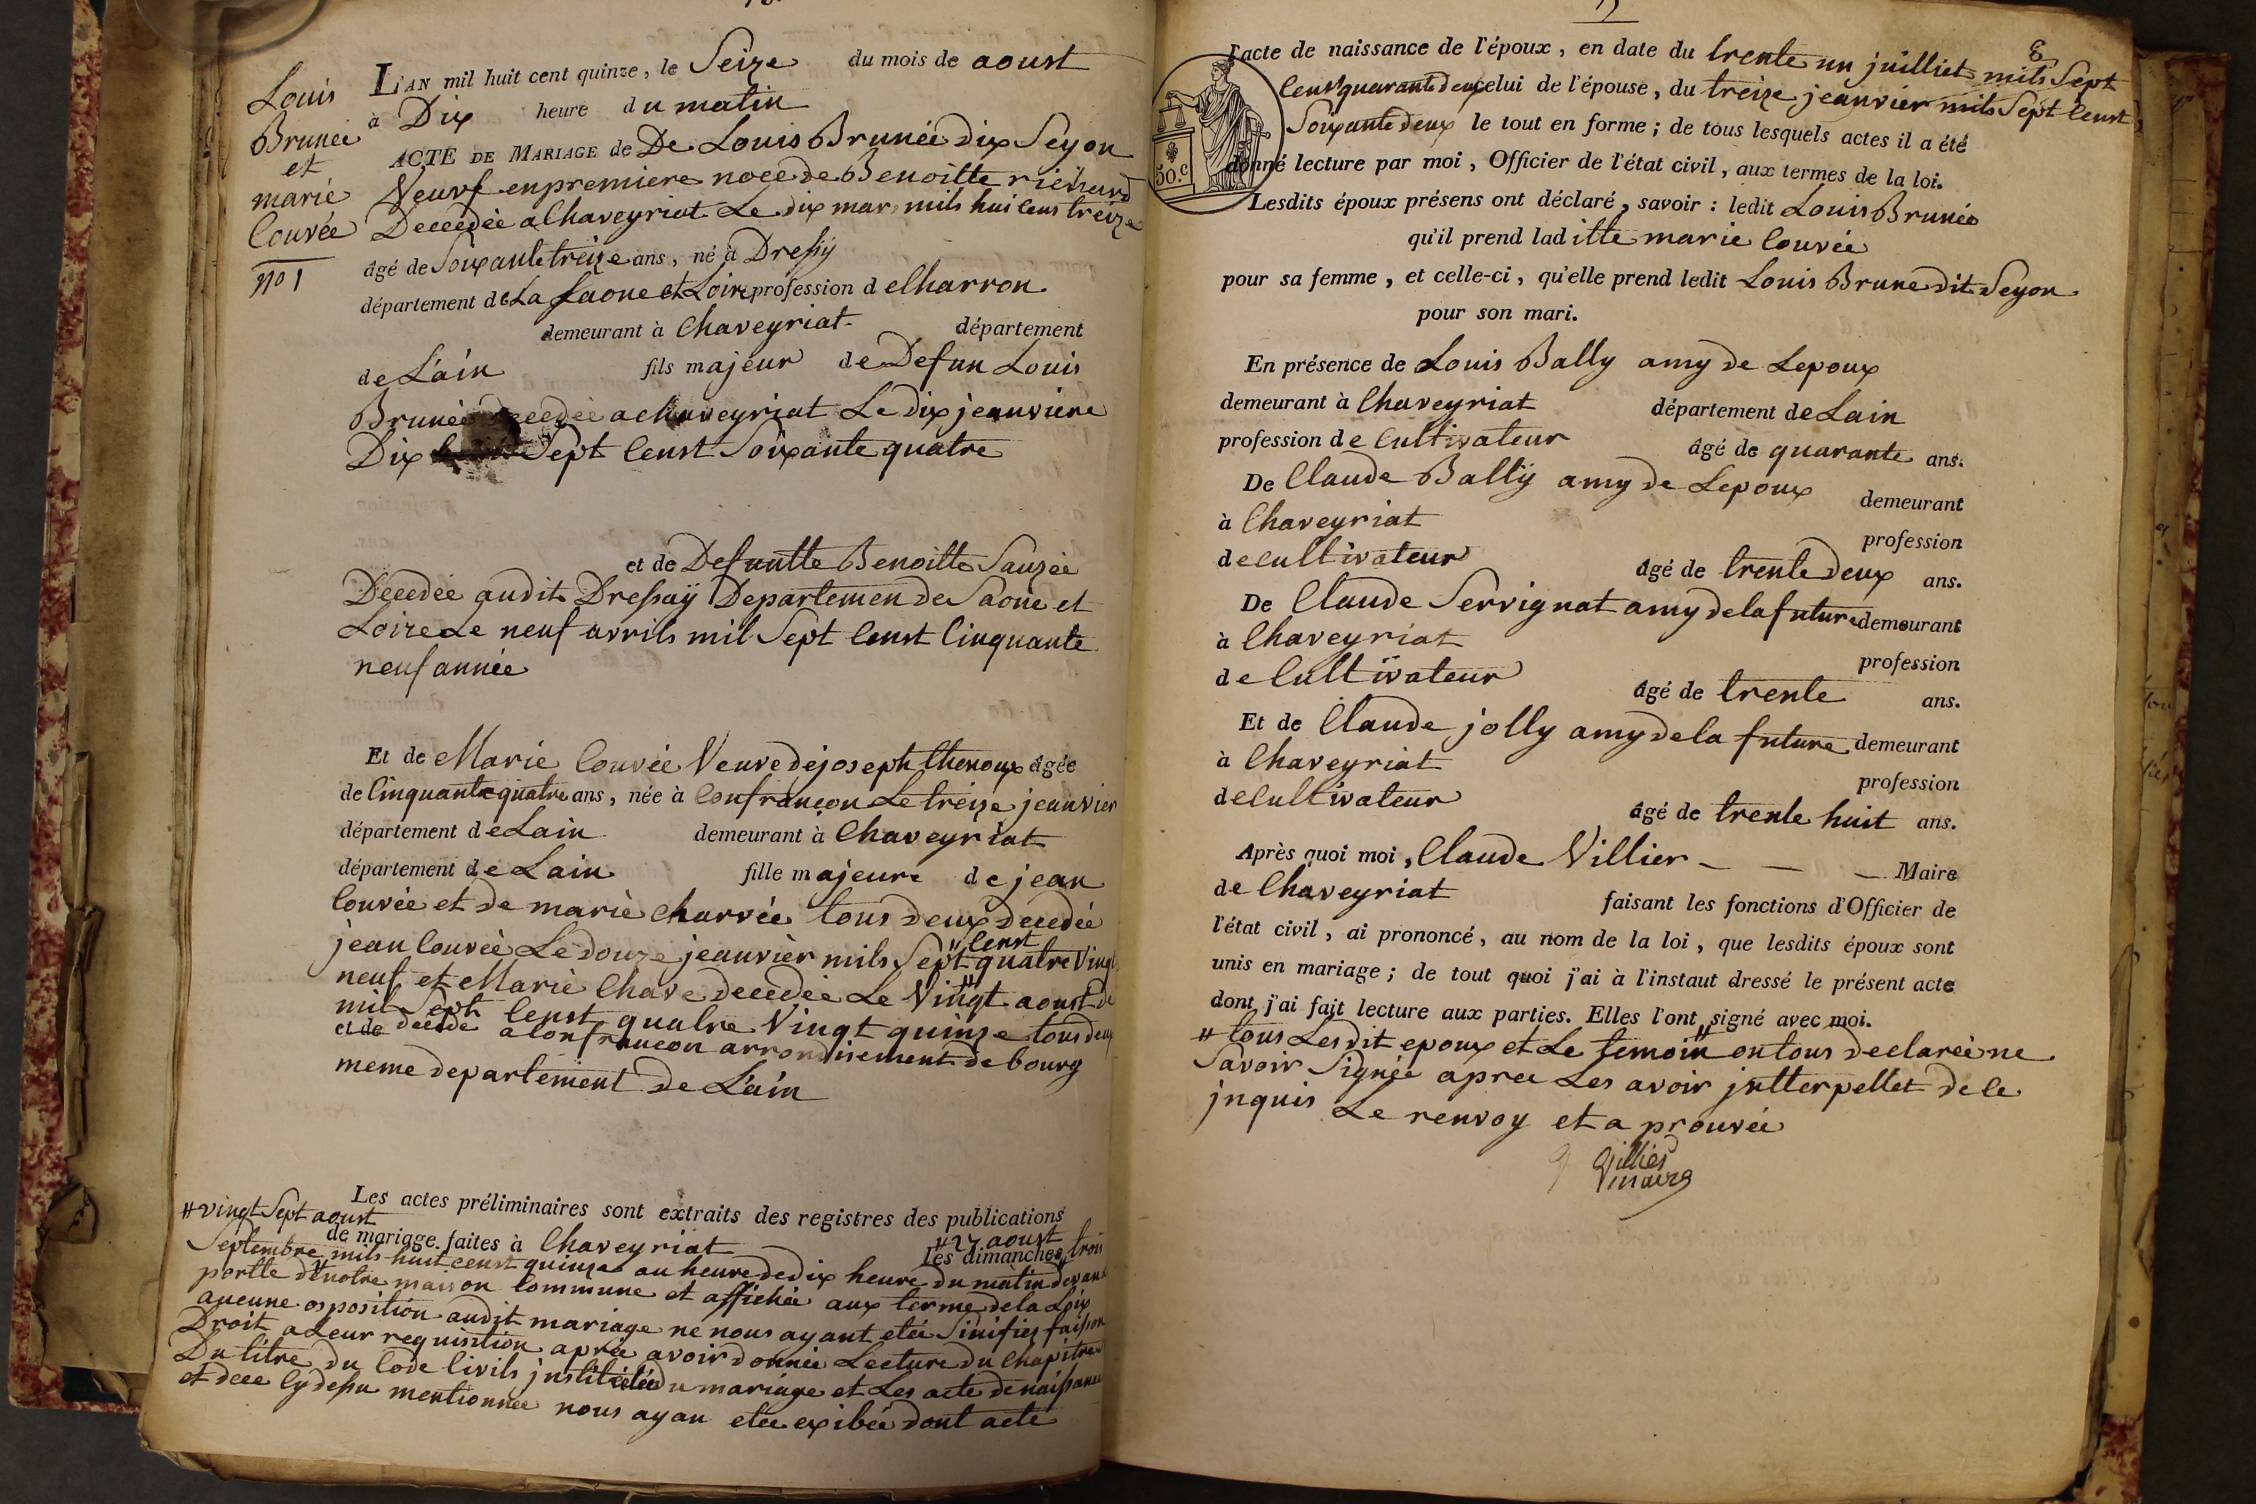 Louis
Brunée
et
marie
Couvée
no 1
L'AN mil huit cent quinze, le Seize du mois de aoust
à Dix heure du matin
ACTE DE MARIAGE de De Louis Brunée dix Seyon
Veuvf en premiere noce de Benoitte richard
Decedée a Chaveyriat Le dix mar, mils hui Cens treize
âgé de Soixante treize ans, né à Dressy
département de La Saone et Loire profession d eCharron
demeurant à Chaveyriat département
de L'ain fils majeur de Defun Louis
Brunée decedée a chaveyriat Le dix jeanviere
Dix Sept Censt Soixante quatre
et de Defuntte Benoitte Sauzée
Decedée audit Dressaÿ Departemen de Saone et
Loire Le neuf avrils mil Sept Censt Cinquante
neuf année
Et de Marie Couvée Veuve de joseph Chenoux âgée
de Cinquante quatre ans, née à Confrançon Le treize jeanvier
département de Lain demeurant à Chaveyriat
département de Lain fille majeure de jean
Couvée et de marie charvée tous deux decedé
jean Couvée Le Douze jeanvier mils Sept " Censt quatre Vingt
neuf et Marie Chave decedee Le Vingt aoust de
mil Sept Censt quatre Vingt quinze tous deux
et de decede a Confrancon arrondisement de bourg
meme departement de L'ain
Les actes préliminaires sont extraits des registres des publications
# vingt Sept aoust
de mariage faites à Chaveyriat # 27 aoust
Les dimanches trois
Septembre mils huit censt quinze au heure de dix heure du matin devant
portte de notre maison Commune et affichée aux terme de la Loix
aucune osposition audit mariage ne nous ayant etée Sinifiez faisson
Droit a Leur requisition aprée avoir donnée Lecture du chapitre
Du titre du Code Civils jnstitulée du mariage et Les acte de naissance
et dece Cy dessu mentionnée nous ayan etée exibée dont acte
8
l'acte de naissance de l'époux, en date du trente un juilliet mils Sept
Censt quarante deux celui de l'épouse, du treize jeanvier mils Sept Censt
Soixante deux le tout en forme; de tous lesquels actes il a été
50.c
donné lecture par moi, Officier de l'état civil, aux termes de la loi.
Lesdits époux présens ont déclaré, savoir: ledit Louis Brunée
qu'il prend lad itte marie Couvée
pour sa femme, et celle-ci, qu'elle prend ledit Louis Brune dit Seyon
pour son mari.
En présence de Louis Bally amy de Lepoux
demeurant à Chaveyriat département de Lain
profession de Cultivateur âgé de quarante ans.
De Claude Ballÿ amy de Lepoux demeurant
à Chaveyriat profession
de cultivateur âgé de trente deux ans.
De Claude Servignat amy de la future demeurant
à Chaveyriat profession
de Cultivateur âgé de trente ans.
Et de Claude jolly amy de la future demeurant
à Chaveyriat profession
de Cultivateur âgé de trente huit ans.
Après quoi moi, Claude Villier Maire
de Chaveyriat faisant les fonctions d'Officier de
l'état civil, ai prononcé, au nom de la loi, que lesdits époux sont
unis en mariage; de tout quoi j'ai à l'instant dressé le présent acte
dont j'ai fait lecture aux parties. Elles l'ont signé avec moi.
# tous Lesdit epoux et Le temoin on tous declarée ne
Savoir Signée apree Les avoir jntterpellet de ce
jnquis Le renvoy et a prouvée
Villier
maire